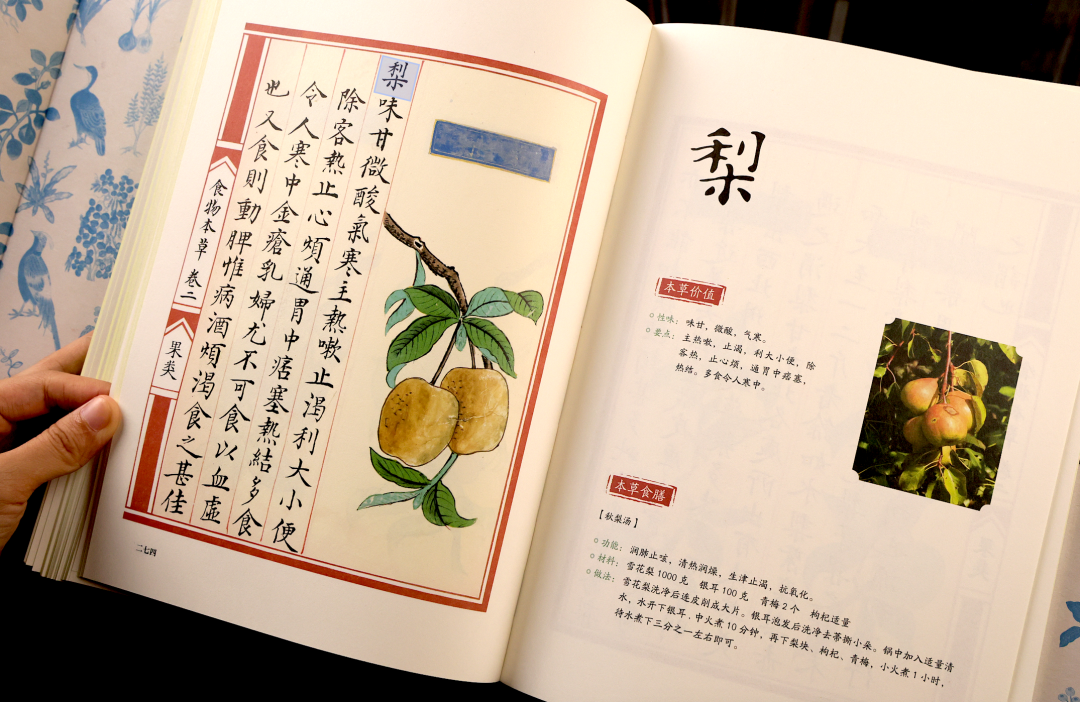 梨味甘微酸氣寒主熱嗽止渴利大小便
除客熱止心煩通胃中痞塞熱結多食
令人寒中金瘡乳婦尤不可食以血虛
也又食則動脾惟病酒煩渴食之甚佳
食物本草 卷二
果类
二七四
梨
本草价值
性味：味甘，微酸，气寒。
要点：主热嗽，止渴，利大小便，除
客热，止心烦，通胃中痞塞，
热结。多食令人寒中。
本草食膳
【秋梨汤】
功能：润肺止咳，清热润燥，生津止渴，抗氧化。
材料：雪花梨1000克 银耳100克 青梅2个 枸杞适量
做法：雪花梨洗净后连皮削成大片。银耳泡发后洗净去蒂撕小朵。锅中加入适量清
水，水开下银耳，中火煮10分钟，再下梨块、枸杞、青梅，小火煮1小时，
待水煮下三分之一左右即可。